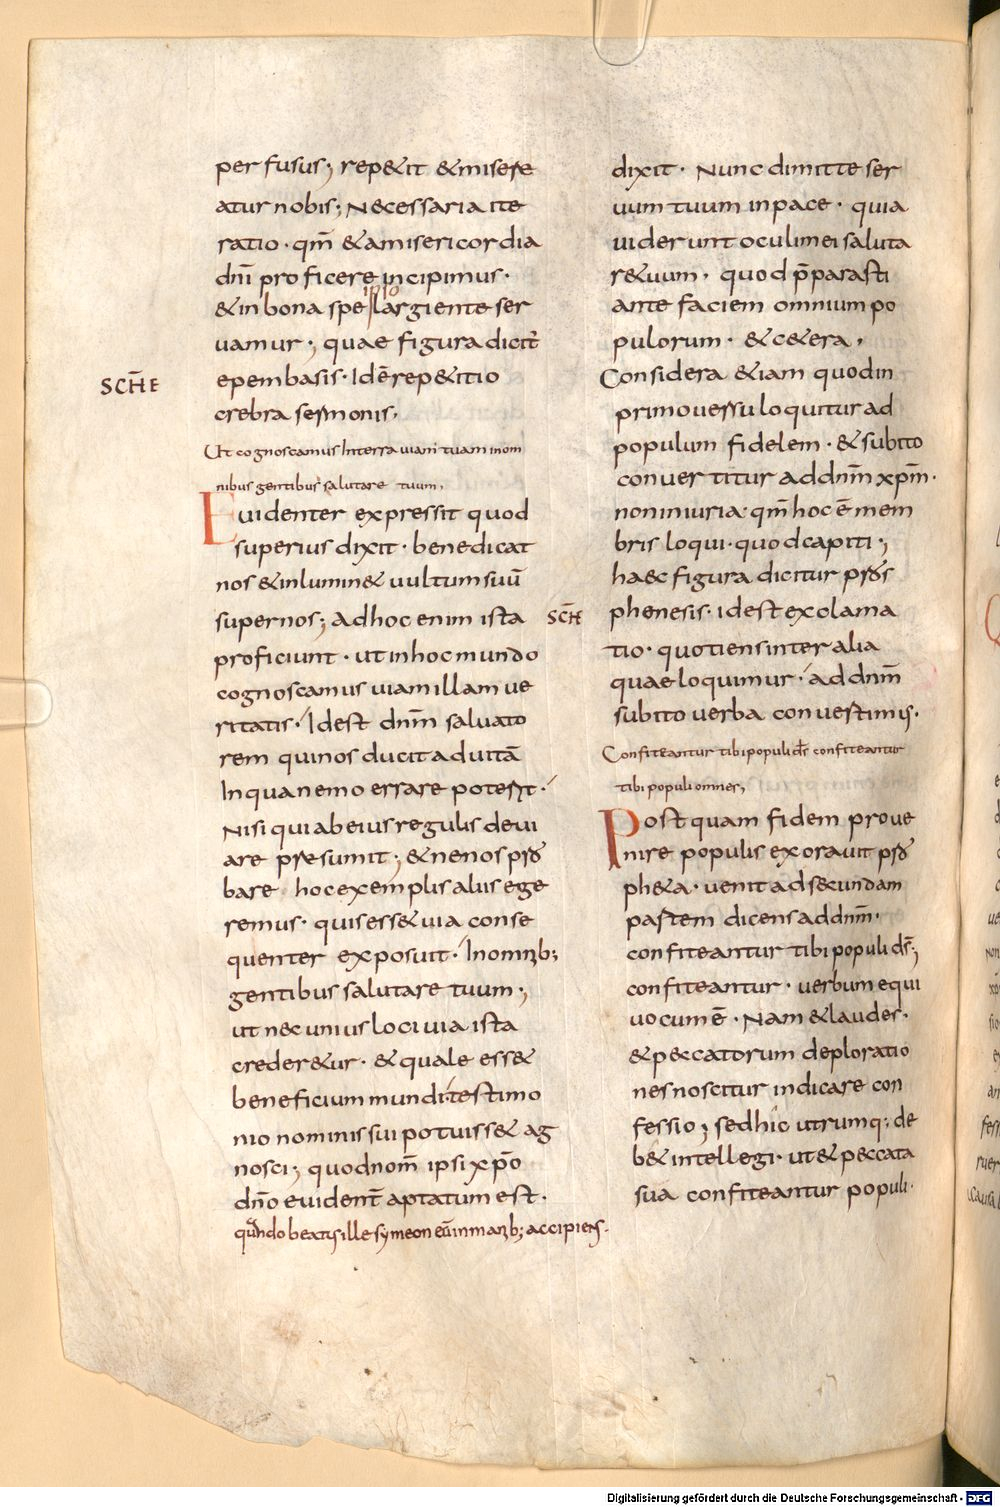 per fusus; rep&it &misere
atur nobis; Necessaria ite
ratio · qm̄ &a misericordia
dn̄i proficere incipimus ·
ipso
& in bona spe largiente ser
uamur ·, quae figura dicit̄
SCHE
epembasis · Idē rep&itio
crebra sermonis,
Ut cognoscamus In terra uiam tuam in om
nibus gentibus salutare tuum,
Euidenter expressit quod
superius dixit · benedicat
nos & inlumin& uultum suū
super nos; ad hoc enim ista
proficiunt · ut in hoc mundo
cognoscamus uiam illam ue
ritatis · Id est dnm̄ saluato
rem qui nos ducit ad uitā
In qua nemo errare potest ·
Nisi qui ab eius regulis deui
are presumit; & ne nos pro
bare hoc exemplis aliis ege
remus · quis ess& uia conse
quenter exposuit · In omnib;
gentibus salutare tuum ·,
ut nec unius loci uia ista
creder&ur · & quale ess&
beneficium mundi · testimo
nio nominis sui potuiss& ag
nosci; quod nom̄ ipsi xp̄o
dn̄o euident̄ aptatum est ·
quando beatus ille symeon eū in manib; accipiens ·
dixit · Nunc dimitte ser
uum tuum in pace · quia
uiderunt oculi mei saluta
r& uum · quod p̄parasti
ante faciem omnium po
pulorum · & c&era,
Considera &iam quod in
primo uersu loquitur ad
populum fidelem · & subito
conuertitur ad dnm̄ xpm̄ ·
non iniuria · qm̄ hoc ē mem
bris loqui · quod capiti ·,
haec figura dicitur pros
SCHE
phenesis · id est exclama
tio · quotiens inter alia
quae loquimur · ad dnm̄
subito uerba conuertimus ·
Confiteantur tibi populi ds̄ confiteantur
tibi populi omnes,
Postquam fidem proue
nire populis exorauit pro
ph&a · uenit ad secundam
partem dicens ad dnm̄ ·
confiteantur tibi populi ds̄ ·,
confiteantur · uerbum equi
uocum ē · Nam & laudes ·
& peccatorum deploratio
nes noscitur indicare con
fessio; sed hic utrumq; de
b& intellegi · ut & peccata
sua confiteantur populi ·
Digitalisierung gefördert durch die Deutsche Forschungsgemeinschaft - DFG